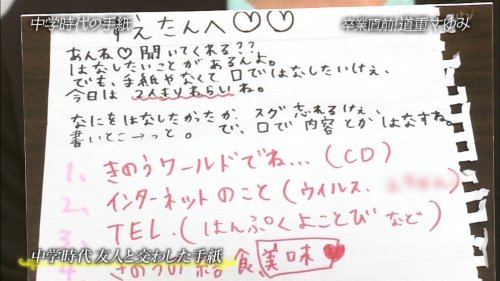 中学時代の手紙
卒業直前!道重さゆみ
すえたんへ♡♡
あんね♡聞いてくれる??
はなしたいことがあるんよ。
でも、手紙やなくて口ではなしたいけぇ、
今日は 2人きりねらいね。
なにをはなしたかったか、スグ忘れるけぇ
書いとこ→っと。 で、口で内容とかはなすね。
1. きのうワールドでね...(CD)
2. インターネットのこと(ウイルス、
3. TEL.(はんぷくよことび など)
4 きのうの給食 美味♥
中学時代 友人と交わした手紙